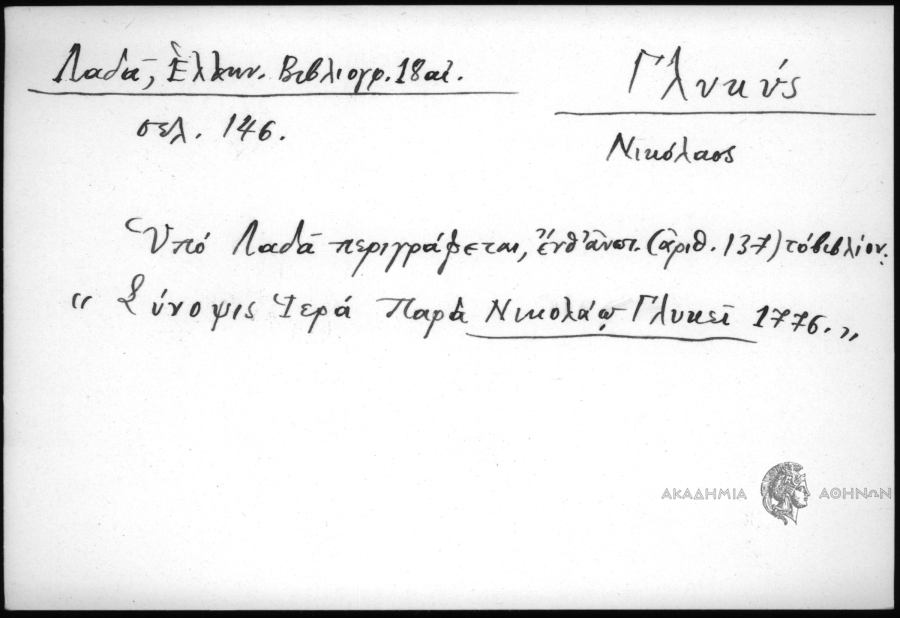 Λαδᾶ, Ἑλλην. Βιβλιογρ. 18 αἰ.
σελ. 146.
Γλυκύς
Νικόλαος
Ὑπό Λαδᾶ περιγράφεται, ἔνθ' ἀνωτ. (ἀριθ. 137) τό βιβλίον:
“ Σύνοψις Ἱερά Παρά Νικολάῳ Γλυκεῖ 1776. „
ΑΚΑΔΗΜΙΑ ΑΘΗΝΩΝ